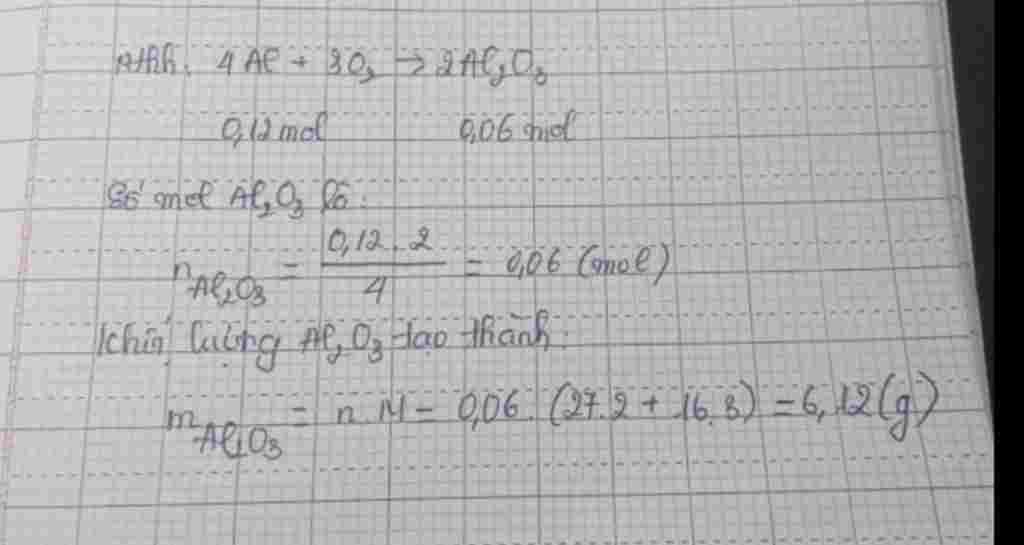 Pthh: 4Al + 3O₂ → 2Al₂O₃
0,12 mol 0,06 mol
Số mol Al₂O₃ là:
n Al₂O₃ = (0,12 . 2)/4 = 0,06 (mol)
Khối lượng Al₂O₃ tạo thành:
m Al₂O₃ = n . M = 0,06 . (27.2 + 16.3) = 6,12 (g)